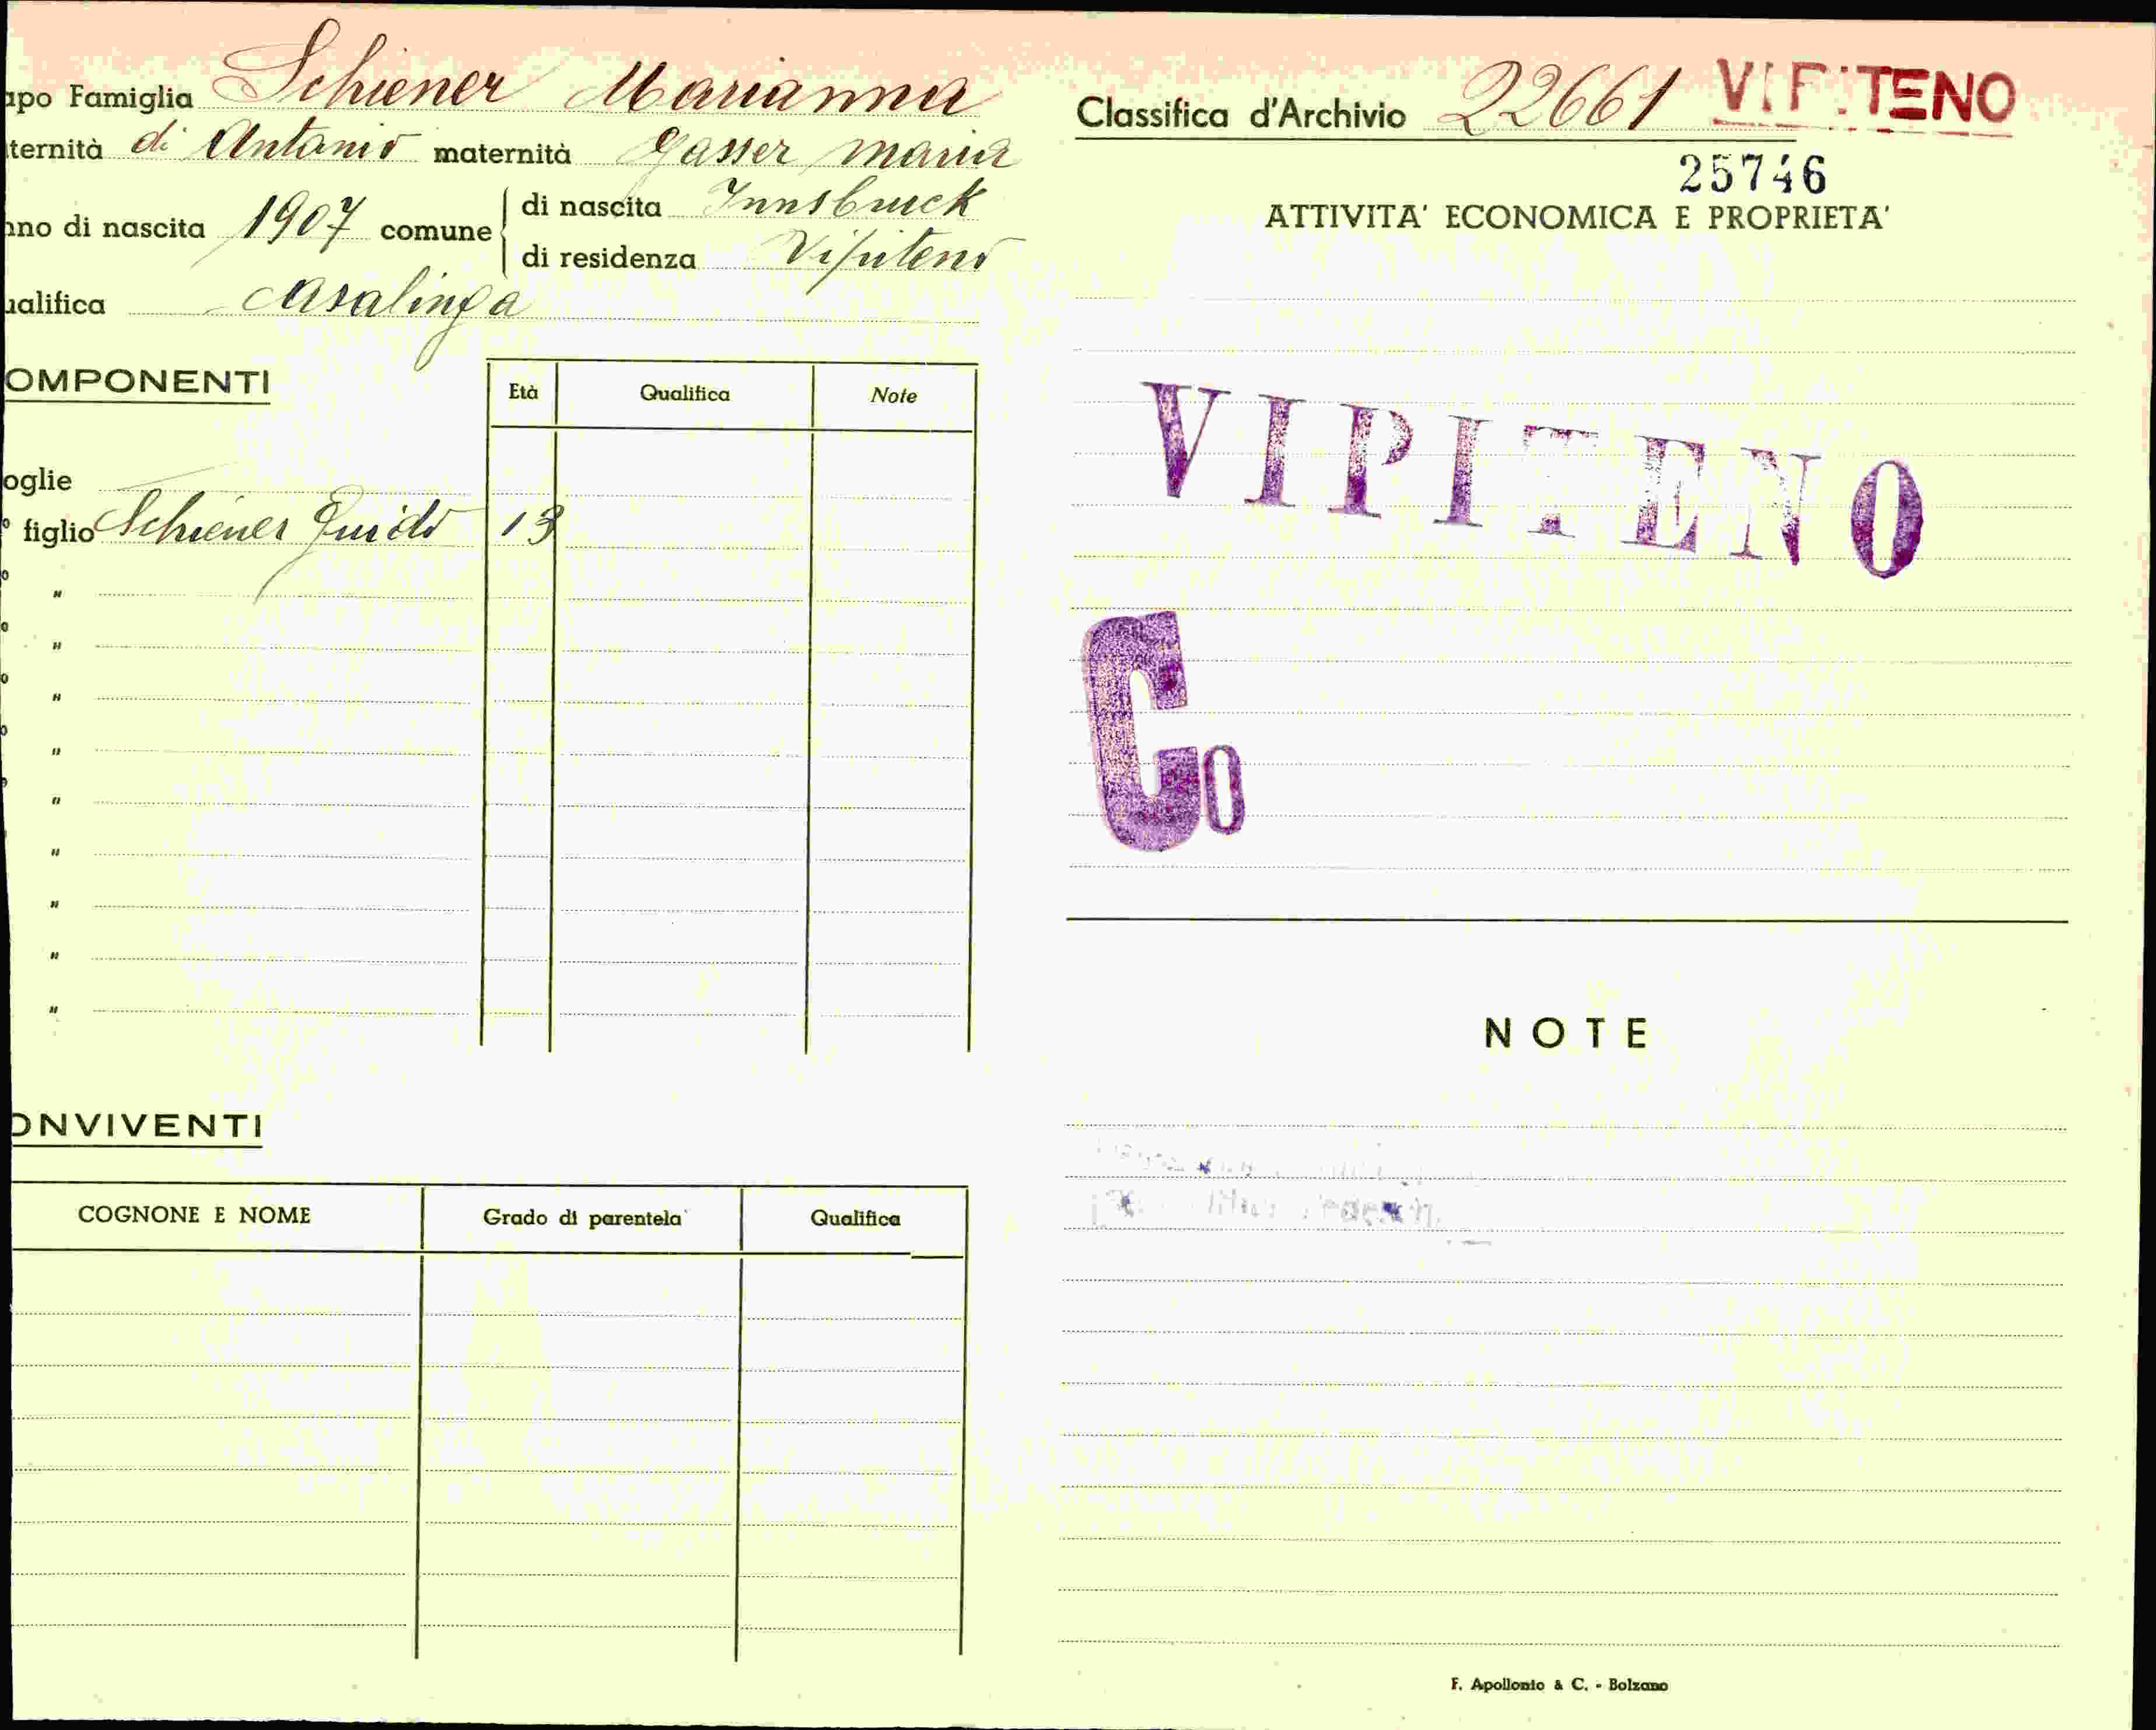 apo Famiglia Schiener Marianna
ternità di Antonio maternità Gasser Maria
nno di nascita 1907 comune di nascita Innsbruck
di residenza Vipiteno
ualifica casalinga
OMPONENTI
Età Qualifica Note
oglie
° figlio Schiener Guido 13
° "
° "
° "
° "
° "
"
"
"
"
ONVIVENTI
COGNONE E NOME Grado di parentela Qualifica
Classifica d'Archivio 22661 VIPITENO
25746
ATTIVITA' ECONOMICA E PROPRIETA'
VIPITENO
Co
NOTE
F. Apollonio & C. - Bolzano